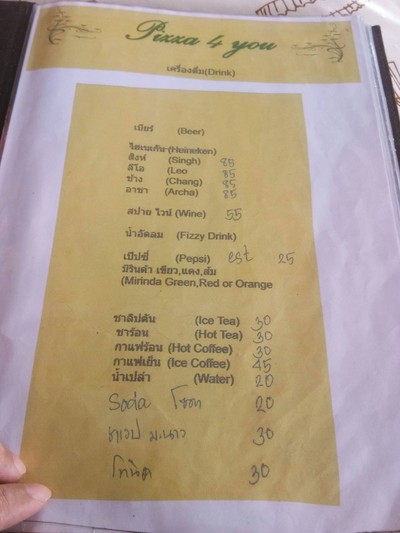 Pizza 4 you
เครื่องดื่ม(Drink)
เบียร์ (Beer)
ไฮเนเก้น (Heineken)
สิงห์ (Singh) 85
ลีโอ (Leo 85
ช้าง (Chang) 85
อาชา (Archa) 85
สปาย ไวน์ (Wine) 55
น้ำอัดลม (Fizzy Drink)
เป๊ปซี่ (Pepsi) est 25
มิรินด้า เขียว,แดง,ส้ม
(Mirinda Green,Red or Orange
ชาลิปตัน (Ice Tea) 30
ชาร้อน (Hot Tea) 30
กาแฟร้อน (Hot Coffee) 30
กาแฟเย็น (Ice Coffee) 45
น้ำเปล่า (Water) 20
Soda โซดา 20
มะนาว 30
โทนิค 30